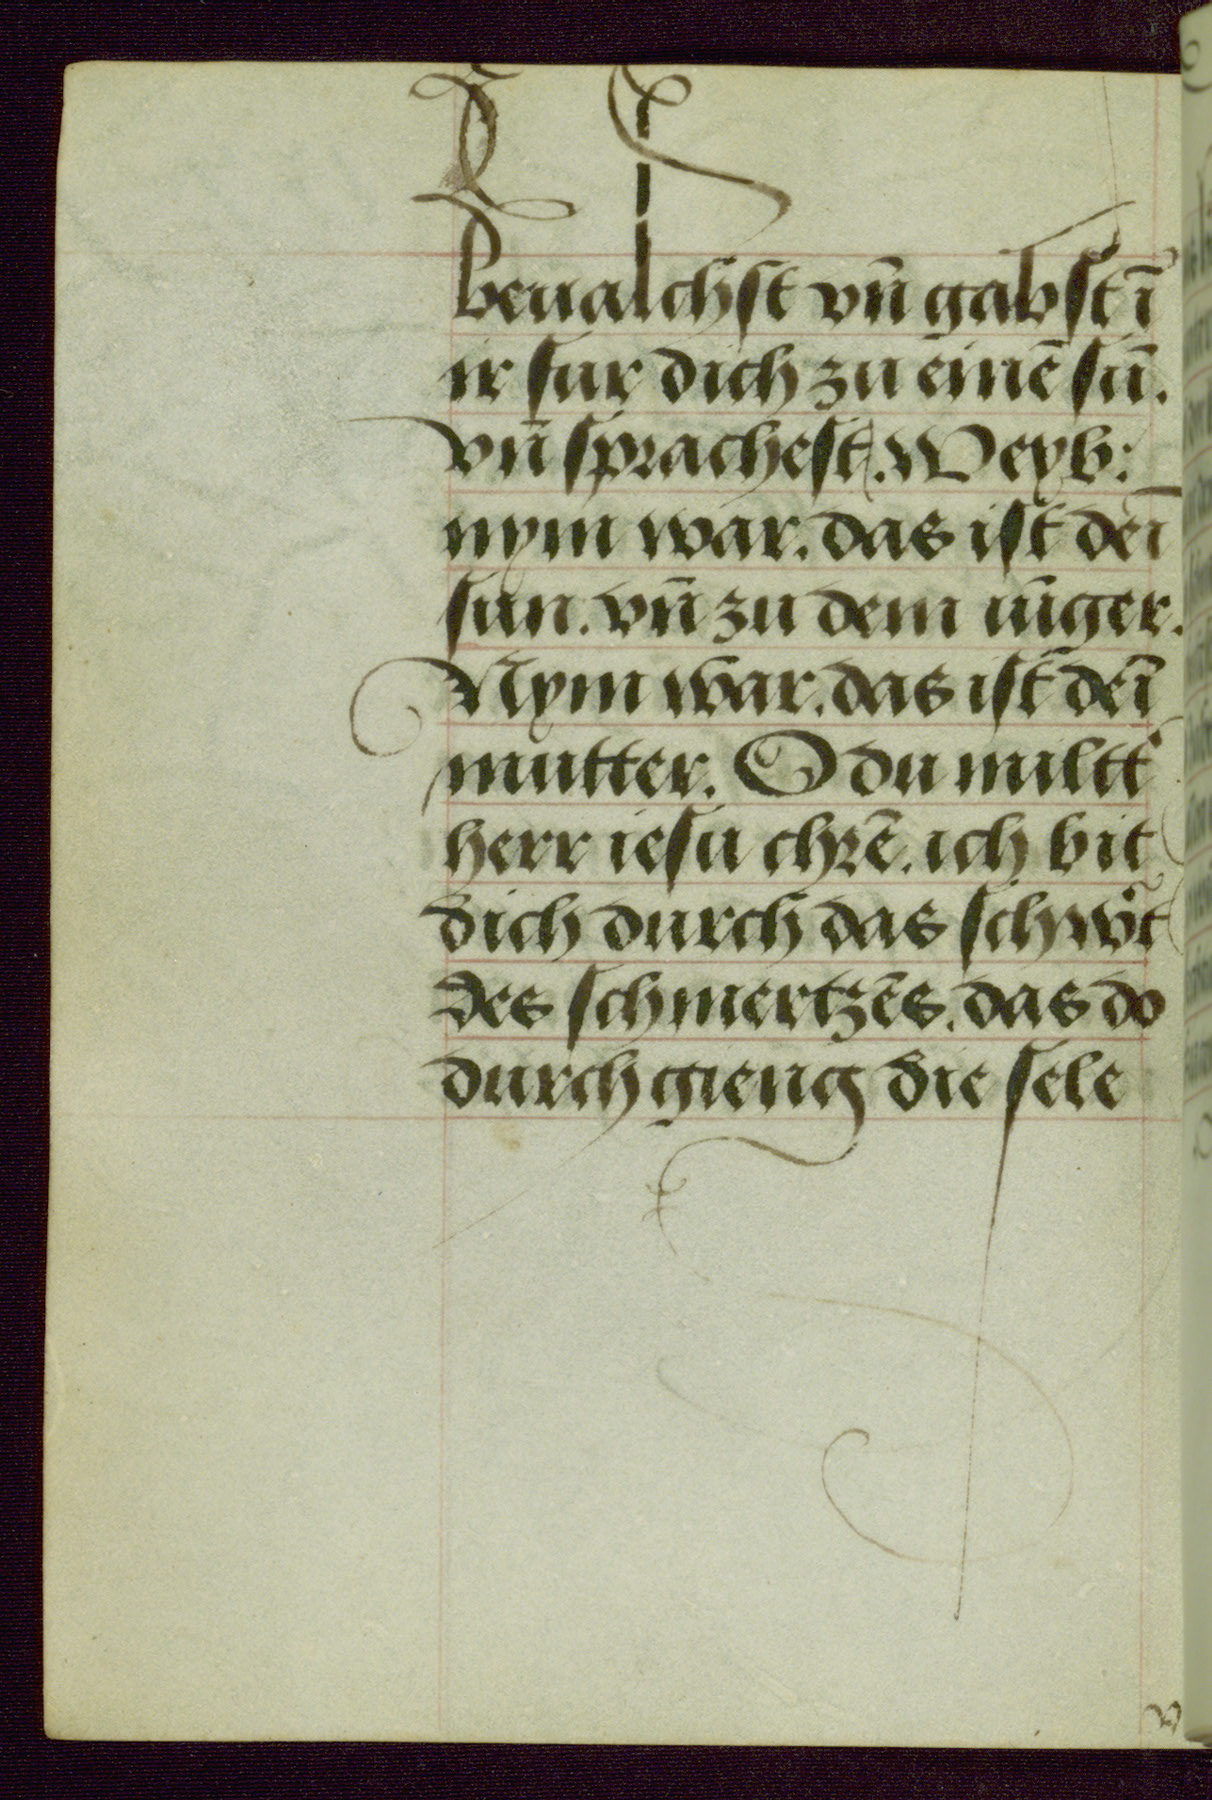 beualchst vn̄ gabst ī
ir fur dich zu einē sū.
vn̄ sprachest. Weyb:
nym war. das ist dei̅
sun. vn̄ zu dem iūger.
Nym war. das ist dei̅
mutter. O du miltt͛
herr iesu chr̄e. ich bit
dich durch das schw͛t
des schmertzēs. das do
durch gieng die sele